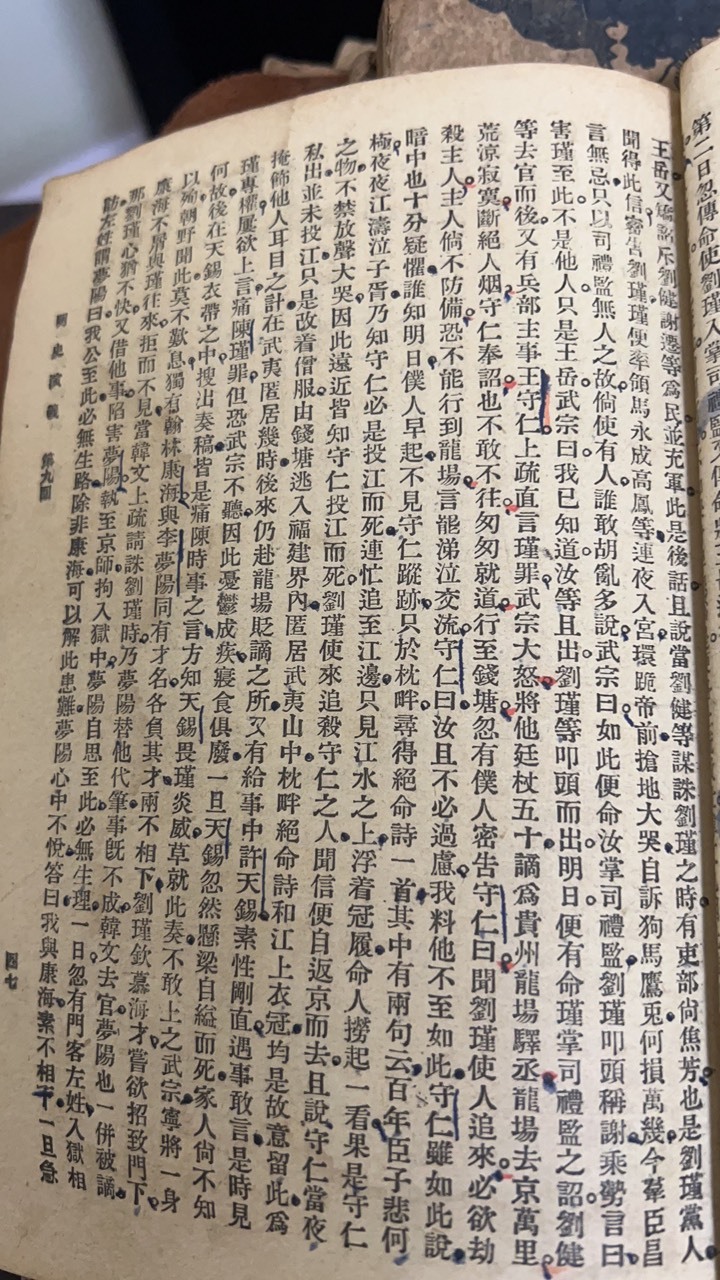 第二日忽傳命使劉瑾入掌司禮監又傳
王岳又矯詔斥劉健謝遷等爲民並充軍此是後話且說當劉健等謀誅劉瑾之時有吏部尙焦芳也是劉瑾黨人
聞得此信密告劉瑾瑾便率領馬永成高鳳等連夜入宮環跪帝前搶地大哭自訴狗馬鷹兎何損萬幾今羣臣昌
言無忌只以司禮監無人之故倘使有人誰敢胡亂多說武宗曰如此便命汝掌司禮監劉瑾叩頭稱謝乘勢言曰
害瑾至此不是他人只是王岳武宗曰我已知道汝等且出劉瑾等叩頭而出明日便有命瑾掌司禮監之詔劉健
等去官而後又有兵部主事王守仁上疏直言瑾罪武宗大怒將他廷杖五十謫爲貴州龍場驛丞龍場去京萬里
荒涼寂寞斷絕人烟守仁奉詔也不敢不往匆匆就道行至錢塘忽有僕人密告守仁曰聞劉瑾使人追來必欲劫
殺主人主人倘不防備恐不能行到龍場言罷涕泣交流守仁曰汝且不必過慮我料他不至如此守仁雖如此說
暗中也十分疑懼誰知明日僕人早起不見守仁蹤跡只於枕畔尋得絕命詩一首其中有兩句云百年臣子悲何
極夜夜江濤泣子胥乃知守仁必是投江而死連忙追至江邊只見江水之上浮着冠履命人撈起一看果是守仁
之物不禁放聲大哭因此遠近皆知守仁投江而死劉瑾使來追殺守仁之人聞信便自返京而去且說守仁當夜
私出並未投江只是改着僧服由錢塘逃入福建界內匿居武夷山中枕畔絕命詩和江上衣冠均是故意留此爲
掩飾他人耳目之計在武夷匿居幾時後來仍赴龍場貶謫之所又有給事中許天錫素性剛直遇事敢言是時見
瑾專權屢欲上言痛陳瑾罪但恐武宗不聽因此憂鬱成疾寢食俱廢一旦天錫忽然懸梁自縊而死家人尙不知
何故後在天錫衣帶之中搜出奏稿皆是痛陳時事之言方知天錫畏瑾炎威草就此奏不敢上之武宗寧將一身
以殉朝野聞此莫不歎息獨有翰林康海與李夢陽同有才名各負其才兩不相下劉瑾欽慕海才嘗欲招致門下
康海不屑與瑾往來拒而不見當韓文上疏請誅劉瑾時乃夢陽替他代筆事旣不成韓文去官夢陽也一併被謫
那劉瑾心猶不快又借他事陷害夢陽執至京師拘入獄中夢陽自思至此必無生理一日忽有門客左姓入獄相
訪左姓謂夢陽曰我公至此必無生路除非康海可以解此患難夢陽心中不悅答曰我與康海素不相下一旦急
明史演義 第九回 四七